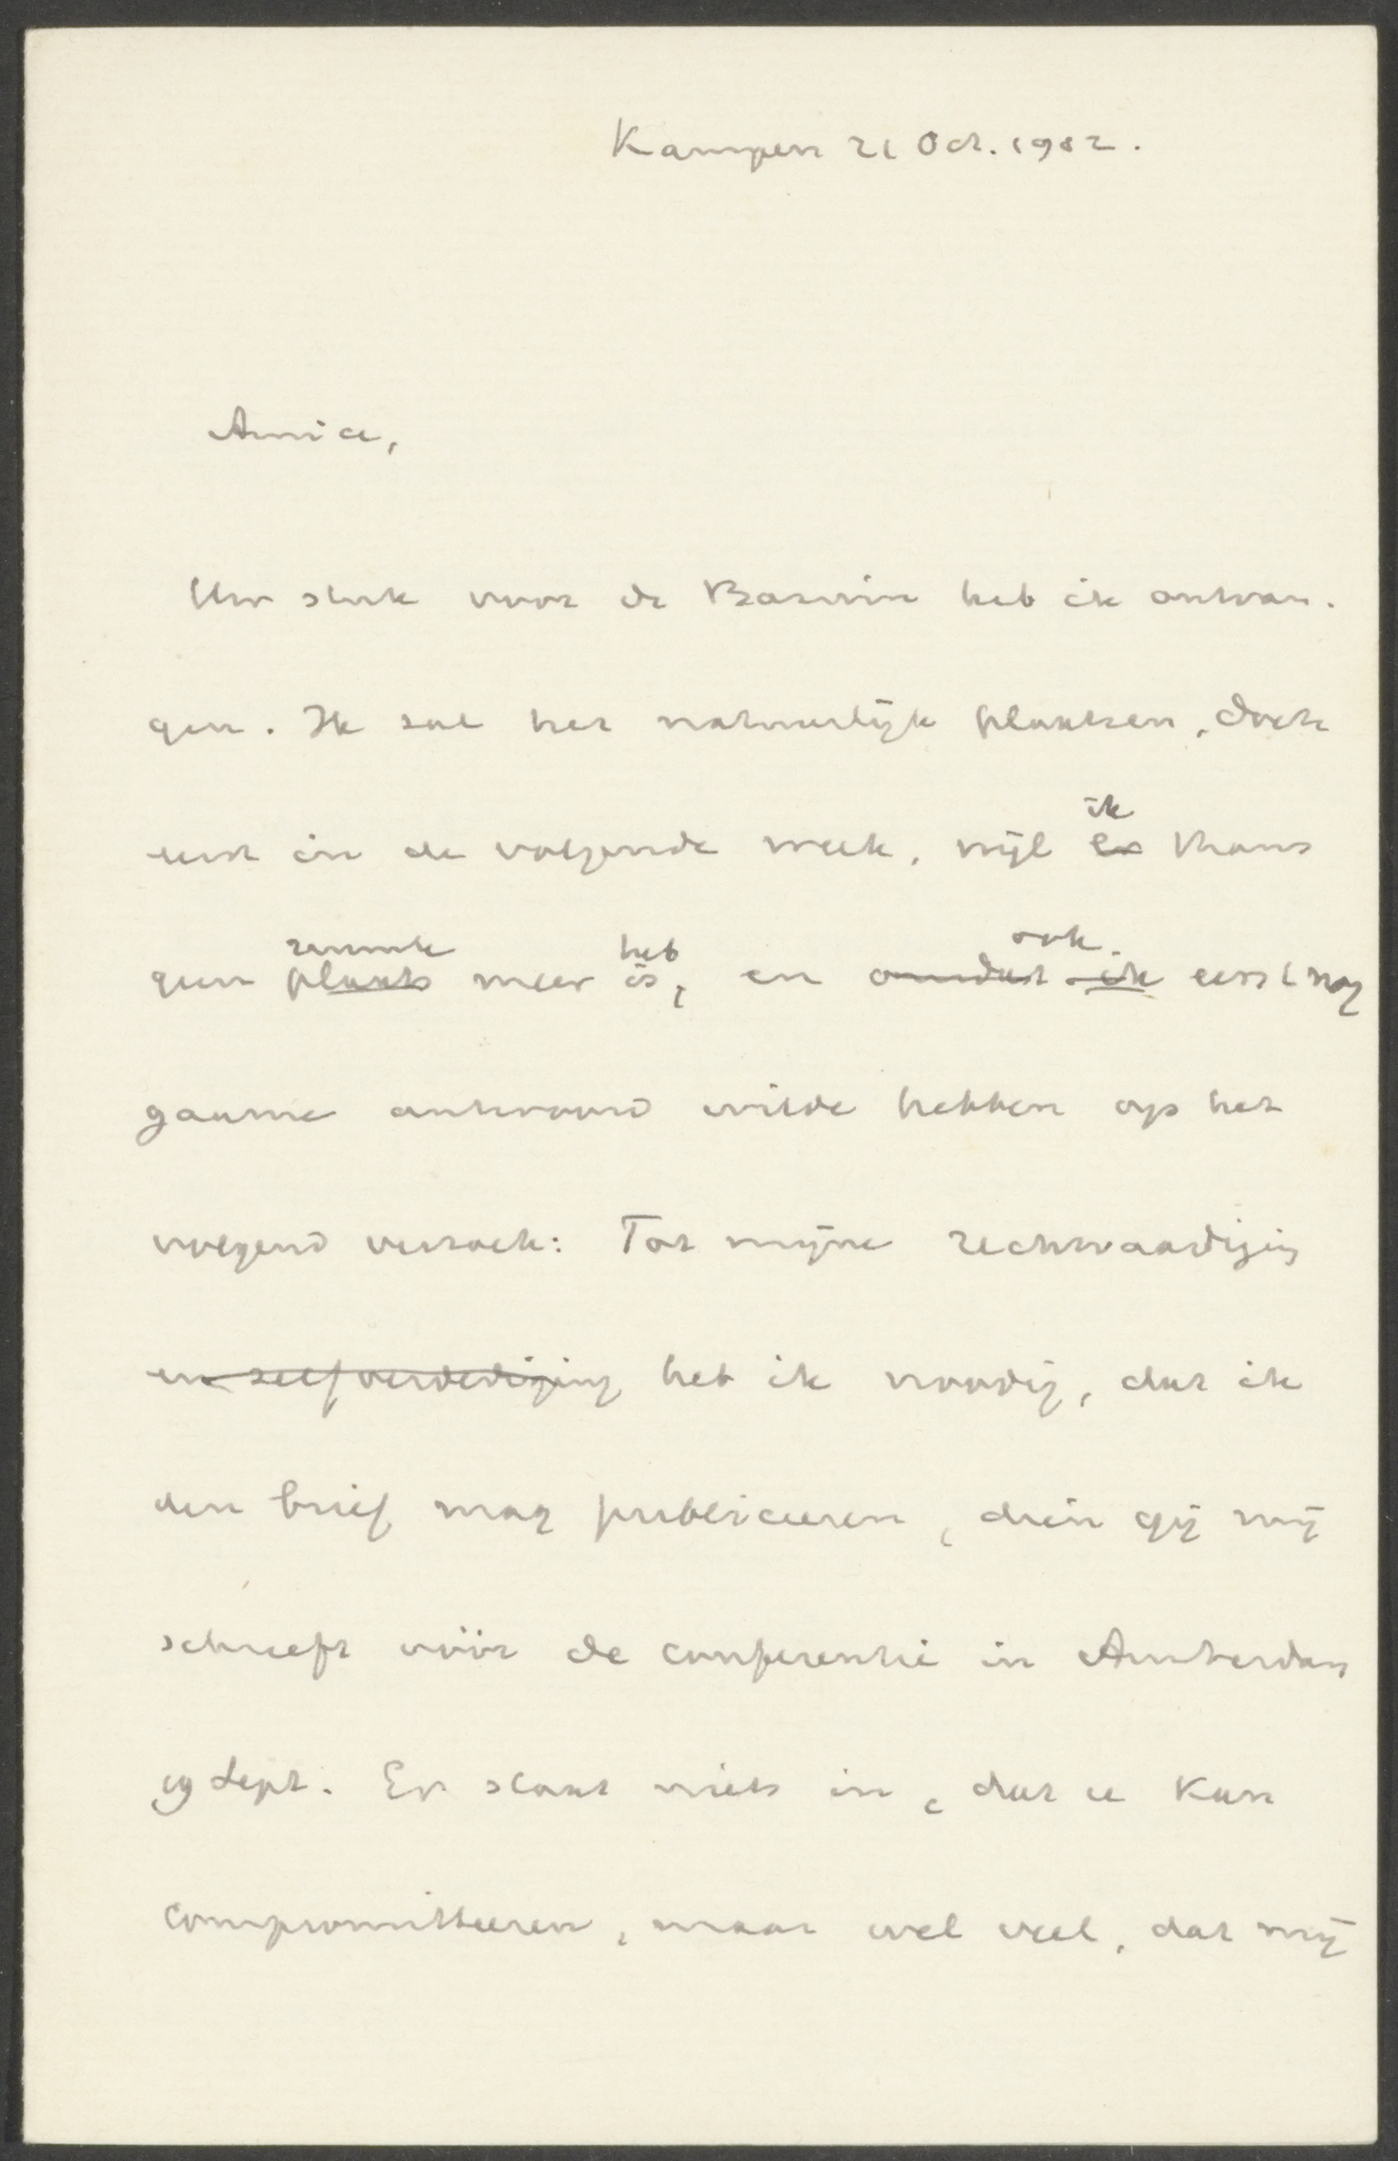 Kampen 21 Oct. 1902.
Amice,
Uw stuk voor de Bazuin heb ik ontvan-
gen. Ik zal het natuurlijk plaatsen, doch
eerst in de volgende week, wijl er ik thans
geen plaats ruimte meer is heb, en omdat ik ook eerst nog
gaarne antwoord wilde hebben op het
volgend verzoek: Tot mijne rechtvaardiging
en zelfverdediging heb ik noodig, dat ik
den brief mag publiceeren, dien gij mij
schreeft vóór de conferentie in Amsterdam
19 Sept. Er staat niets in, dat u kan
compromitteeren, maar wel veel, dat mij